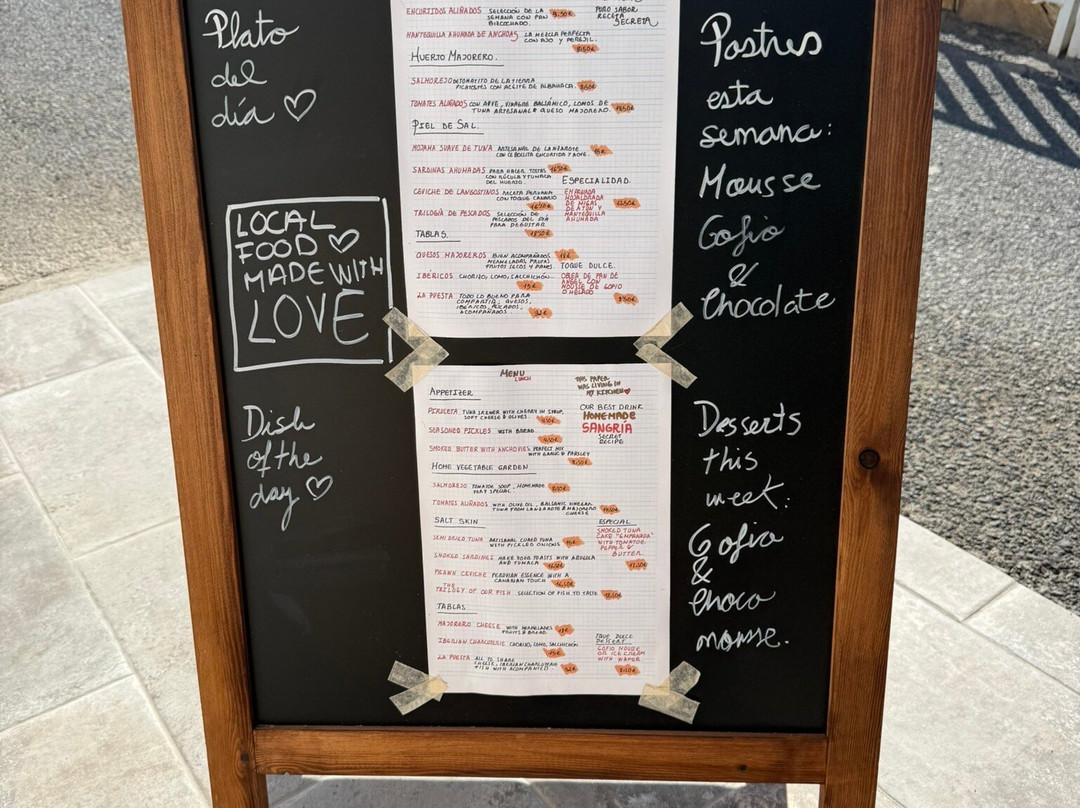 Plato
del
día
LOCAL
FOOD
MADE WITH
LOVE
Dish
of the
day
ENCURTIDOS ALIÑADOS SELECCIÓN DE LA
SEMANA CON PAN
BIZCOCHADO.
PURO SABOR
RECETA
SECRETA
MANTEQUILLA AHUMADA DE ANCHOAS LA MEZCLA PERFECTA
CON AJO Y PEREJIL.
HUERTO MAJORERO.
SALMOREJO DE TOMATITO DE LA TIERRA
PICATOSTES CON ACEITE DE ALBAHACA.
TOMATES ALIÑADOS CON AOVE, VINAGRE BALSÁMICO, LOMOS DE
TUNA ARTESANAL & QUESO MAJORERO.
PIEL DE SAL.
MOJAMA SUAVE DE TUNA ARTESANAL DE LANZAROTE
CON CEBOLLITA ENCURTIDA Y AOVE.
SARDINAS AHUMADAS PARA HACER TOSTAS
CON RÚCULA Y TUMACA
DEL HUERTO.
ESPECIALIDAD.
CEVICHE DE LANGOSTINOS RECETA PERUANA
CON TOQUE CANARIO
EMPANADA
HOJALDRADA
DE MIGAS
DE ATÚN Y
MANTEQUILLA
AHUMADA
TRILOGÍA DE PESCADOS SELECCIÓN DE
PESCADOS DEL DÍA
PARA DEGUSTAR
TABLAS.
QUESOS MAJOREROS BIEN ACOMPAÑADOS
MERMELADAS, FRUTAS
FRUTOS SECOS Y PANES.
TOQUE DULCE.
IBÉRICOS CHORIZO, LOMO, SALCHICHÓN
15€
OBLEA DE PAN DE
ÁNGEL CON
MOUSSE DE GOFIO
O HELADO
LA PUESTA TODO LO BUENO PARA
COMPARTIR, QUESOS,
IBÉRICOS, PESCADOS,
ACOMPAÑADOS.
32€
MENU
LUNCH
THIS PAPER
WAS LIVING IN
MY KITCHEN
APPETIZER
PIRULETA TUNA SKEWER WITH CHERRY IN SYRUP,
SOFT CHEESE & OLIVES.
OUR BEST DRINK
HOMEMADE
SANGRIA
SECRET
RECIPE
SEASONED PICKLES WITH BREAD
SMOKED BUTTER WITH ANCHOVIES PERFECT MIX
WITH GARLIC & PARSLEY
HOME VEGETABLE GARDEN
SALMOREJO TOMATOE SOUP, HOMEMADE
VERY SPECIAL.
TOMATES ALIÑADOS WITH OLIVE OIL, BALSAMIC VINEGAR
TUNA FROM LANZAROTE & MAJORERO
CHEESE
SALT SKIN
ESPECIAL
SEMI DRIED TUNA ARTISANAL CURED TUNA
WITH PICKLED ONIONS
SMOKED TUNA
CAKE "EMPANADA"
WITH TOMATOE
PEPPER &
BUTTER.
SMOKED SARDINES MAKE GOOD TOASTS WITH ARUGULA
AND TUMACA
PRAWN CEVICHE PERUVIAN ESSENCE WITH A
CANARIAN TOUCH
THE
TRILOGY OF OUR FISH SELECTION OF FISH TO TASTE
TABLAS
MAJORERO CHEESE WITH MERMELADES
FRUITS & BREAD.
IBERIAN CHARCUTERIE CHORIZO, LOMO, SALCHICHÓN
15€
DESSERT
GOFIO MOUSE
OR ICE CREAM
WITH WAFER
LA PUESTA ALL TO SHARE
CHEESE, IBERIAN CHARCUTERIE
FISH WITH ACOMPANIED
32€
Postres
esta
semana:
Mousse
Gofio
&
Chocolate
Desserts
this
week:
Gofio
&
Choco
mousse.